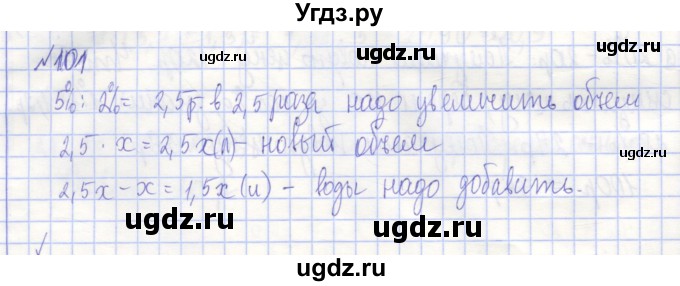 Угдз.ру
№101
ugdz.ru ugdz.ru
5% : 2% = 2,5р. в 2,5 раза надо увеличить объем
2,5 · х = 2,5х(л) - новый объем
ugdz.ru ugdz.ru
2,5х - х = 1,5х (л) - воды надо добавить.
ugdz.ru ugdz.ru
ugdz.ru